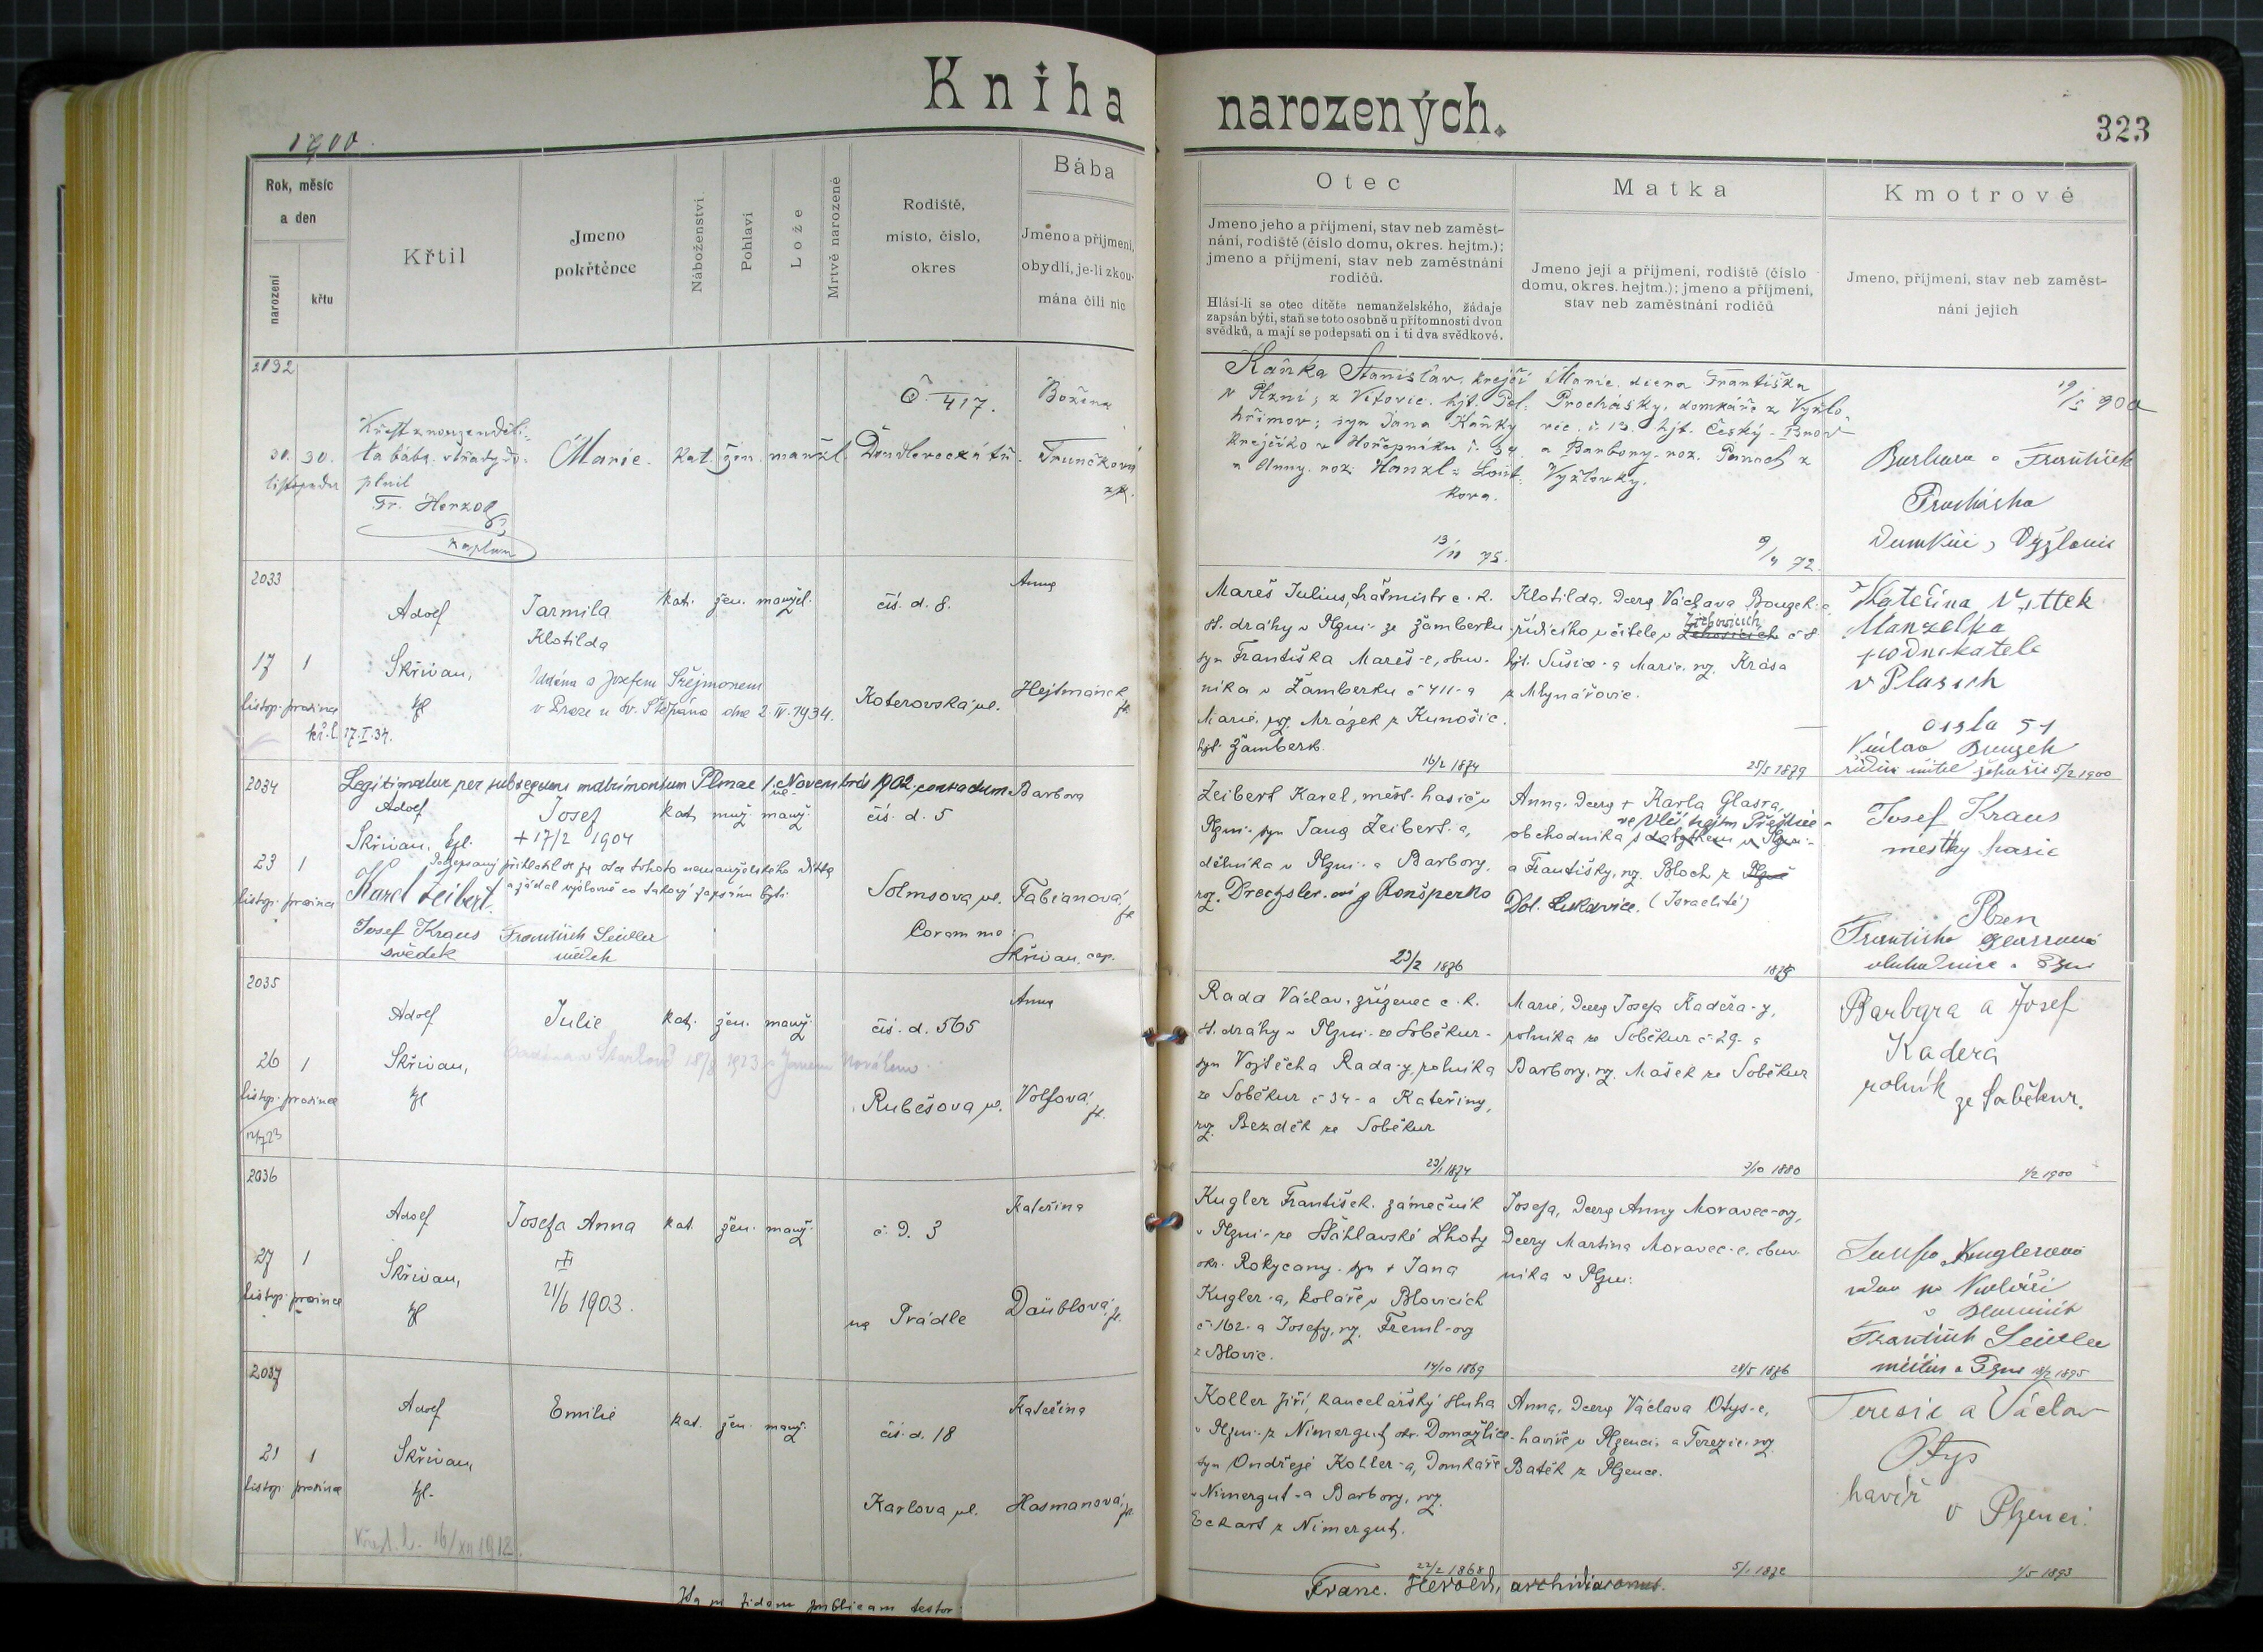 Kniha narozených.
323
1900.
Rok, měsíc
a den
narození
křtu
Křtil
Jmeno
pokřtěnce
Náboženství
Pohlaví
Lože
Mrtvě narozené
Rodiště,
místo, číslo,
okres
Bába
Jméno a příjmení,
obydlí, je-li zkou-
mána čili nic
Otec
Jmeno jeho a příjmení, stav neb zaměst-
nání, rodiště (číslo domu, okres. hejtm.);
jmeno a příjmení, stav neb zaměstnání
rodičů.
Hlásí-li se otec dítěte nemanželského, žádaje
zapsán býti, staň se toto osobně u přítomnosti dvou
svědků, a mají se podepsati on i ti dva svědkové.
Matka
Jmeno její a příjmení, rodiště (číslo
domu, okres. hejtm.); jmeno a příjmení,
stav neb zaměstnání rodičů
Kmotrové
Jmeno, příjmení, stav neb zaměst-
nání jejich
2032
30. 30.
listopadu
ta bába. obřady do-
plnil
Fr. Herzog
kaplan
Marie.
kat. žen. manžl.
Č. 417.
Doudlevecká tř.
Božena
Trunčková
zk.
Kaňka Stanislav, krejčí
v Plzni; z Větovic. hjt. Pel-
hřimov; syn Jana Kaňky
krejčího v Hořepníku č. 34.
a Anny. roz. Hanzl z Lout-
kova.
13/11 75.
Marie. dcera Františka
Procházky, domkáře z Vyžlo-
vic. č. 13. hjt. Český-Brod
a Barbory. roz. Pánech z
Vyžlovky.
9/4 72.
19/5 900
Barbara a František
Procházka
2033
17 1
listop. prosince
kř. l. 17.I.34.
Adolf
Skřivan,
kpl
Jarmila
Klotilda
Oddána s Josefem Šréjmonem
v Praze u sv. Štěpána dne 2.IV.1934.
kat. žen. manžel.
čís. d. 8.
Koterovská ul.
Anna
Hejtmánek
zk.
Mareš Julius, strážmistr c. k.
st. dráhy v Plzni - ze Žamberku -
syn Františka Mareš-e, obuv-
níka v Žamberku č 411 - a
Marie, roz. Mrázek z Kunošic.
hjt. Žamberk.
16/2 1874
Klotilda, dcera Václava Bouzek-a
řídícího učitele v Žichovicích č 8
hjt. Sušice - a Marie, roz. Krása
z Mlynářovic.
25/5 1879
Kateřina Vittek
Manželka
podnikatele
v Plasích
čísla 51
Václav Bouzek
5/2 1900
2034
Legitimatur per subsequens matrimonium Plznae 1. Novembris 1902 contractum.
23 1
listop. prosince
Adolf
Skřivan, kpl.
Josef
+ 17/2 1904
kat. muž. ne-manž.
čís. d. 5
Podepsaný přihlásil se za otce tohoto nemanželského dítka
a žádal výslovně co takový zapsán býti.
Karel Zeibert.
Josef Kraus
svědek
František Seidler
svědek
Solmsova ul.
Coram me:
Skřivan, cap.
Barbora
Fabianová
zk.
Zeibert Karel, měst. hasič v
Plzni - syn Jana Zeibert-a,
dělníka v Plzni - a Barbory,
roz. Drechsler-ové z Ronšperka
23/2 1876
Anna, dcera + Karla Glasra,
ve Vlčí hejtm Přeštice
obchodníka s dobytkem v Plzni -
a Františky, roz. Bloch z Plzně
Dol. Lukavice. (Israelité)
Josef Kraus
městký hasič
Plzen
Františka Glasrová
2035
26 1
listop. prosince
Adolf
Skřivan,
kpl
Julie
kat. žen. manž.
čís. d. 565
Rubešova ul.
Anna
Volfová
zk.
Rada Václav, zřízenec c. k.
st. dráhy v Plzni - ze Soběkur -
syn Vojtěcha Rada-y, rolníka
ze Soběkur č 34 - a Kateřiny,
roz. Bezděk ze Soběkur
23/1 1874
Marie, dcera Josefa Kadeřa-y,
rolníka ze Soběkur č 29 - a
Barbory, roz. Mašek ze Soběkur
3/10 1880
Barbora a Josef
Kadera
rolník ze Saběkur.
1/2 1900
2036
27 1
listop. prosince
Adolf
Skřivan,
kpl
Josefa Anna
21/6 1903.
kat. žen. manž.
č. D. 3
na Prádle
Kateřina
Daüblová
zk.
Kugler František, zámečník
v Plzni - ze Šťáhlavské Lhoty
okr. Rokycany - syn + Jana
Kugler-a, koláře v Blovicích
č 162 - a Josefy, roz. Freml-ovy
z Blovic.
14/10 1869
Josefa, dcera Anny Moravec-ovy,
dcery Martina Moravec-e, obuv-
níka v Plzni.
28/5 1876
František Seidler
18/2 1895
2037
21 1
listop. prosince
Adolf
Skřivan,
kpl.
Křest. l. 16/XII 1912.
Emilie
kat. žen. manž.
čís. d. 18
Karlova ul.
Kateřina
Hasmanová
zk.
Koller Jiří, kancelářský sluha
v Plzni - z Nimergut, okr. Domažlice -
syn Ondřeje Koller-a, domkáře
v Nimergut - a Barbory, roz.
Eckart z Nimergut.
22/2 1868
Anna, dcera Václava Otys-e,
havíře v Plzenci - a Terezie, roz.
Batěk z Plzence.
5/1 1872
Teresie a Václav
Otys
havíř v Plzenci.
1/5 1893
In fidem publicam testor:
Franc. Herold, archidiaconus.